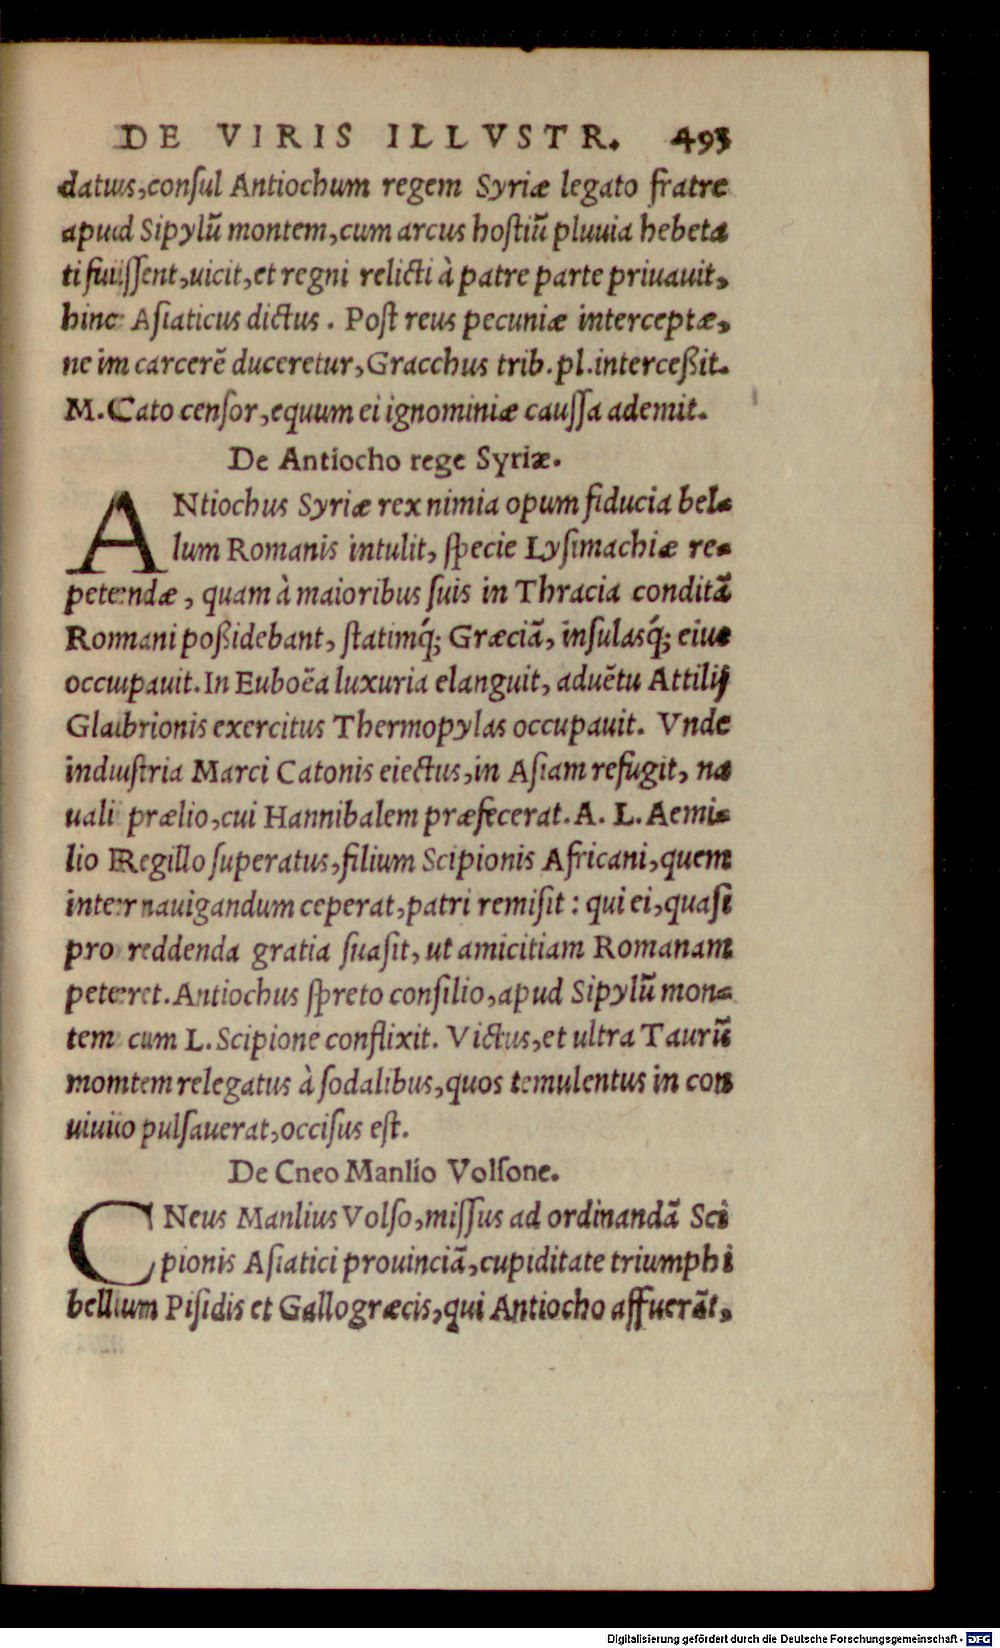 DE VIRIS ILLVSTR. 493
datus, conſul Antiochum regem Syriæ legato fratre
apud Sipylũ montem, cum arcus hoſtiũ pluuia hebeta
ti fuiſſent, uicit, et regni relicti à patre parte priuauit,
hinc Aſiaticus dictus. Poſt reus pecuniæ interceptæ,
ne in carcerẽ duceretur, Gracchus trib. pl. interceßit.
M. Cato cenſor, equum ei ignominiæ cauſſa ademit.
De Antiocho rege Syriæ.
ANtiochus Syriæ rex nimia opum fiducia bel-
lum Romanis intulit, ſpecie Lyſimachiæ re-
petendæ, quam à maioribus ſuis in Thracia conditã
Romani poßidebant, ſtatimq́; Græciã, inſulasq́; eius
occupauit. In Euboẽa luxuria elanguit, aduẽtu Attilij
Glabrionis exercitus Thermopylas occupauit. Vnde
induſtria Marci Catonis eiectus, in Aſiam refugit, na
uali prælio, cui Hannibalem præfecerat. A. L. Aemi-
lio Regillo ſuperatus, filium Scipionis Africani, quem
inter nauigandum ceperat, patri remiſit: qui ei, quaſi
pro reddenda gratia ſuaſit, ut amicitiam Romanam
peteret. Antiochus ſpreto conſilio, apud Sipylũ mon-
tem cum L. Scipione conflixit. Victus, et ultra Taurũ
montem relegatus à ſodalibus, quos temulentus in con
uiuio pulſauerat, occiſus eſt.
De Cneo Manlio Volſone.
CNeus Manlius Volſo, miſſus ad ordinandã Sci
pionis Aſiatici prouinciã, cupiditate triumphi
bellum Piſidis et Gallogræcis, qui Antiocho affuerãt,
Digitalisierung gefördert durch die Deutsche Forschungsgemeinschaft - DFG